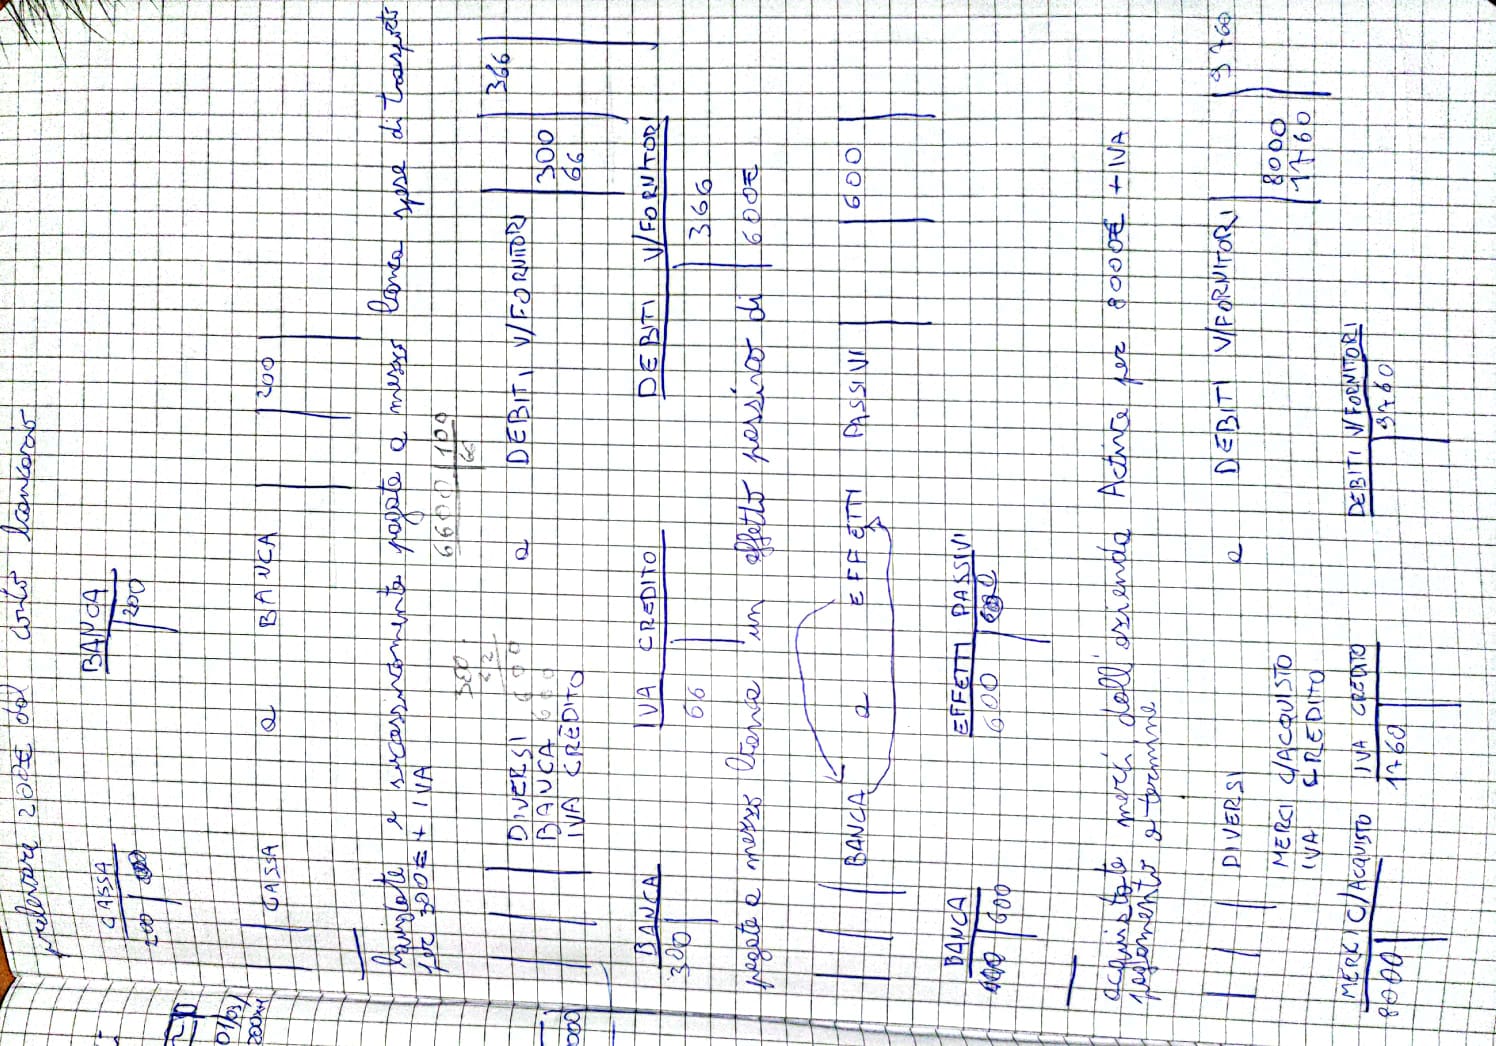 prelevare 200€ dal conto bancario
CASSA BANCA
200 200
CASSA a BANCA 200
e successivamente pagate a mezzo banca spese di trasporto
per 300€ + IVA
6600 100
66
300
22
600
600
DIVERSI a DEBITI V/FORNITORI 366
BANCA 300
IVA CREDITO 66
BANCA IVA CREDITO DEBITI V/FORNITORI
300 66 366
pagato a mezzo banca un effetto passivo di 600€
BANCA a EFFETTI PASSIVI 600
BANCA EFFETTI PASSIVI
600 600
acquistate merci dall'azienda Actince per 8000€ + IVA
pagamento a termine
DIVERSI a DEBITI V/FORNITORI 9760
MERCI C/ACQUISTO 8000
IVA CREDITO 1760
MERCI C/ACQUISTO IVA CREDITO DEBITI V/FORNITORI
8000 1760 9760
01/03/
000